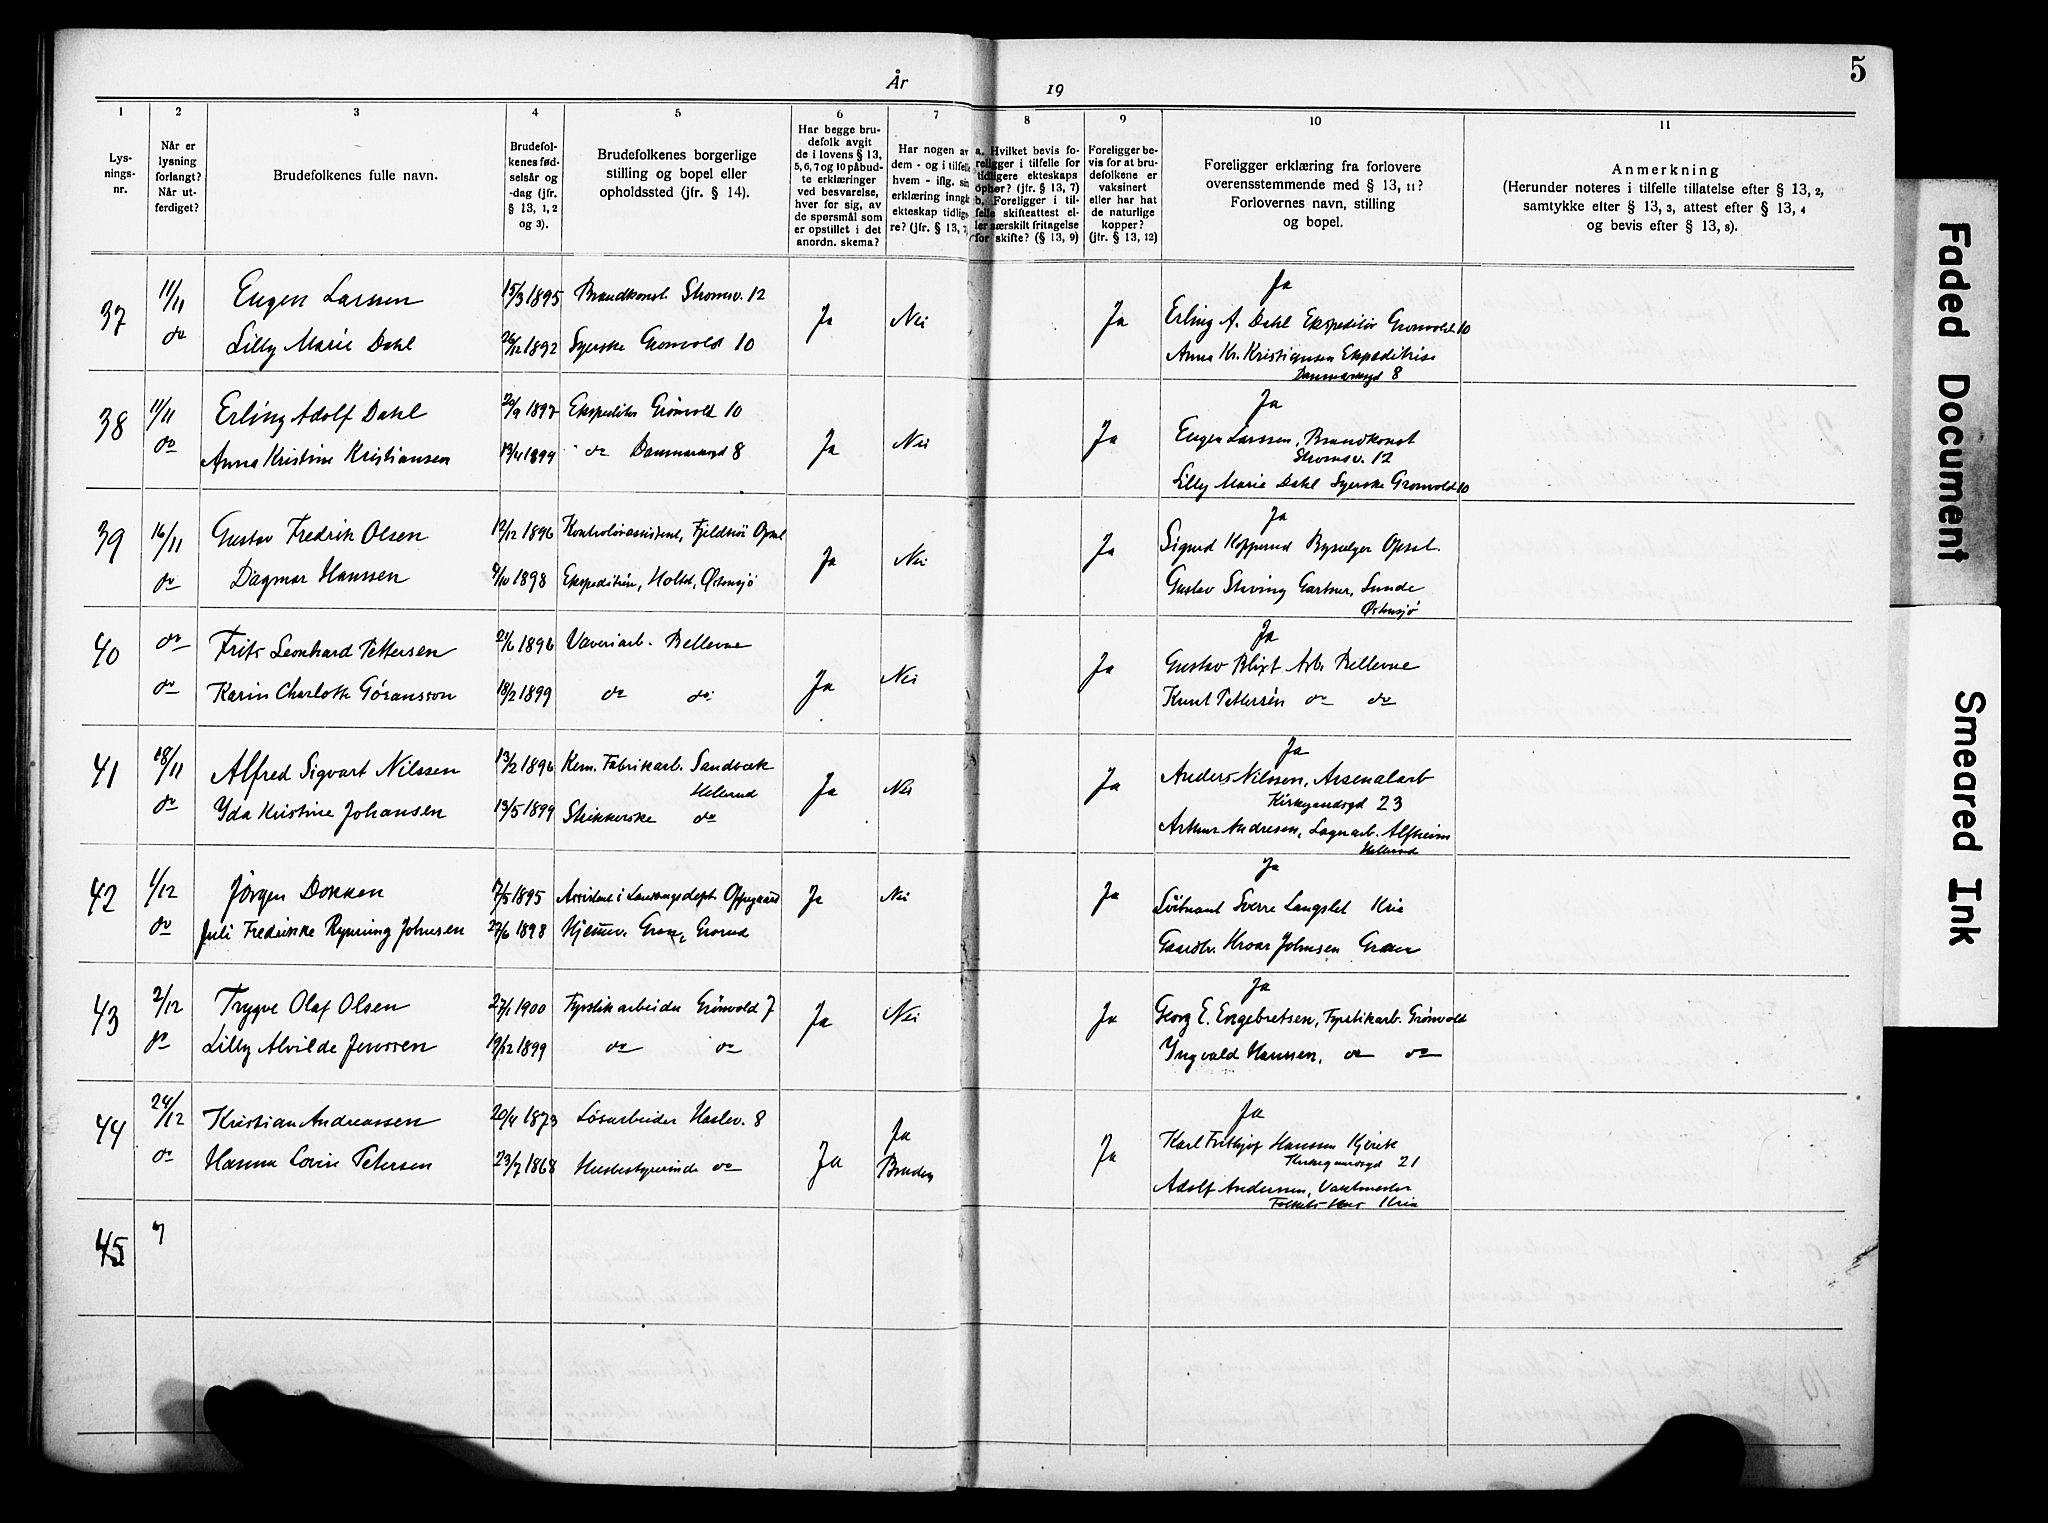 År
19
5
1
2
3
4
5
6
7
8
9
10
11
Lys-
nings-
nr.
Når er
lysning
forlangt?
Når ut-
ferdiget?
Brudefolkenes fulle navn.
Brudefol-
kenes fød-
selsår og
-dag (jfr.
§ 13, 1, 2
og 3).
Brudefolkenes borgerlige
stilling og bopel eller
opholdssted (jfr. § 14).
Har begge bru-
defolk avgit
de i lovens § 13,
5, 6, 7 og 10 påbud-
te erklæringer
ved besvarelse,
hver for sig, av
de spørsmål som
er opstillet i det
anordn. skema?
Har nogen av
dem - og i tilfelle
hvem - iflg. sin
erklæring inngå
ekteskap tidlige
re? (jfr. § 13, 7
a. Hvilket bevis fo-
religger i tilfelle for
tidligere ekteskaps
ophør? (jfr. § 13, 7)
b. Foreligger i til-
felle skifteattest el-
ler særskilt fritagelse
for skifte? (§ 13, 9)
Foreligger be-
vis for at bru-
defolkene er
vaksinert
eller har hat
de naturlige
kopper?
(jfr. § 13, 12)
Foreligger erklæring fra forlovere
overensstemmende med § 13, 11?
Forlovernes navn, stilling
og bopel.
Anmerkning
(Herunder noteres i tilfelle tillatelse efter § 13, 2,
samtykke efter § 13, 3, attest efter § 13, 4
og bevis efter § 13, 8).
37 11/11 Eugen Larssen 15/3 1895 Brandkonst. Strømsv. 12 Ja Nei Ja Ja
do Lilly Marie Dahl 1892 Syerske Grønvold 10
Erling A. Dahl Ekspeditør Grønvold 10
Anna Kr. Kristiansen Ekspeditrise
Danmarksgd 8
38 11/11 Erling Adolf Dahl Ekspeditør Grønvold 10 Ja Nei Ja Ja
do Anna Kristine Kristiansen 1899 do Danmarksgd 8
Eugen Larssen, Brandkonst
Strømsv. 12
Lilly Marie Dahl Syerske Grønvold 10
39 16/11 Gustav Fredrik Olsen 12/12 1896 Ja Nei Ja Ja
do Dagmar Hanssen 1898 Østensjø
Sigurd Kopperud Opsal.
Gustav Gartner, Sunde
Østensjø
40 do Frits Leonhard Pettersen 21/6 1896 Væveriarb. Bellevue Ja Nei Ja Ja
do Karin Charlotte Göransson 18/2 1899 do do
Gustav Blixt Arb. Bellevue
Knut Pettersen do do
41 18/11 Alfred Sigvart Nilssen 13/2 1896 Kem. Fabrikarb. Sandbæk Ja Nei Ja Ja
Hellerud
do Yda Kristine Johansen 13/5 1899 Strikkerske do
Anders Nilssen, Arsenalarb
Kirkegaardsgd 23
Arthur Andresen, Lagerarb. Alfheim
Hellerud
42 1/12 Jörgen Dokken 7/5 1895 Assistent i Landbrugsdept. Oppegaard Ja Nei Ja Ja
do Juli Fredrikke Rynning Johnsen 27/6 1898 Hjemmev. Gran, Grorud
Löitnant Sverre Langslet Kria
Gaardbr. Hroar Johnsen Gran
43 2/12 Trygve Olaf Olsen 27/1 1900 Fyrstikarbeider Grønvold 7 Ja Nei Ja Ja
do Lilly Alvilde Jenssen 19/12 1899 do do
Georg E. Engebretsen, Fyrstikarb. Grønvold
Yngvald Hanssen, do do
44 24/12 Kristian Andreassen 20/4 1873 Løsarbeider Haslev. 8 Ja Ja Ja Ja
do Hanna Petersen 23/7 1868 Husbestyrerinde do Bruden
Karl Frithjof Hanssen
Kirkegaardsgd 21
Adolf Andersen, Vaktmester
Folkets Hus Kria
45
Faded Document
Smeared Ink